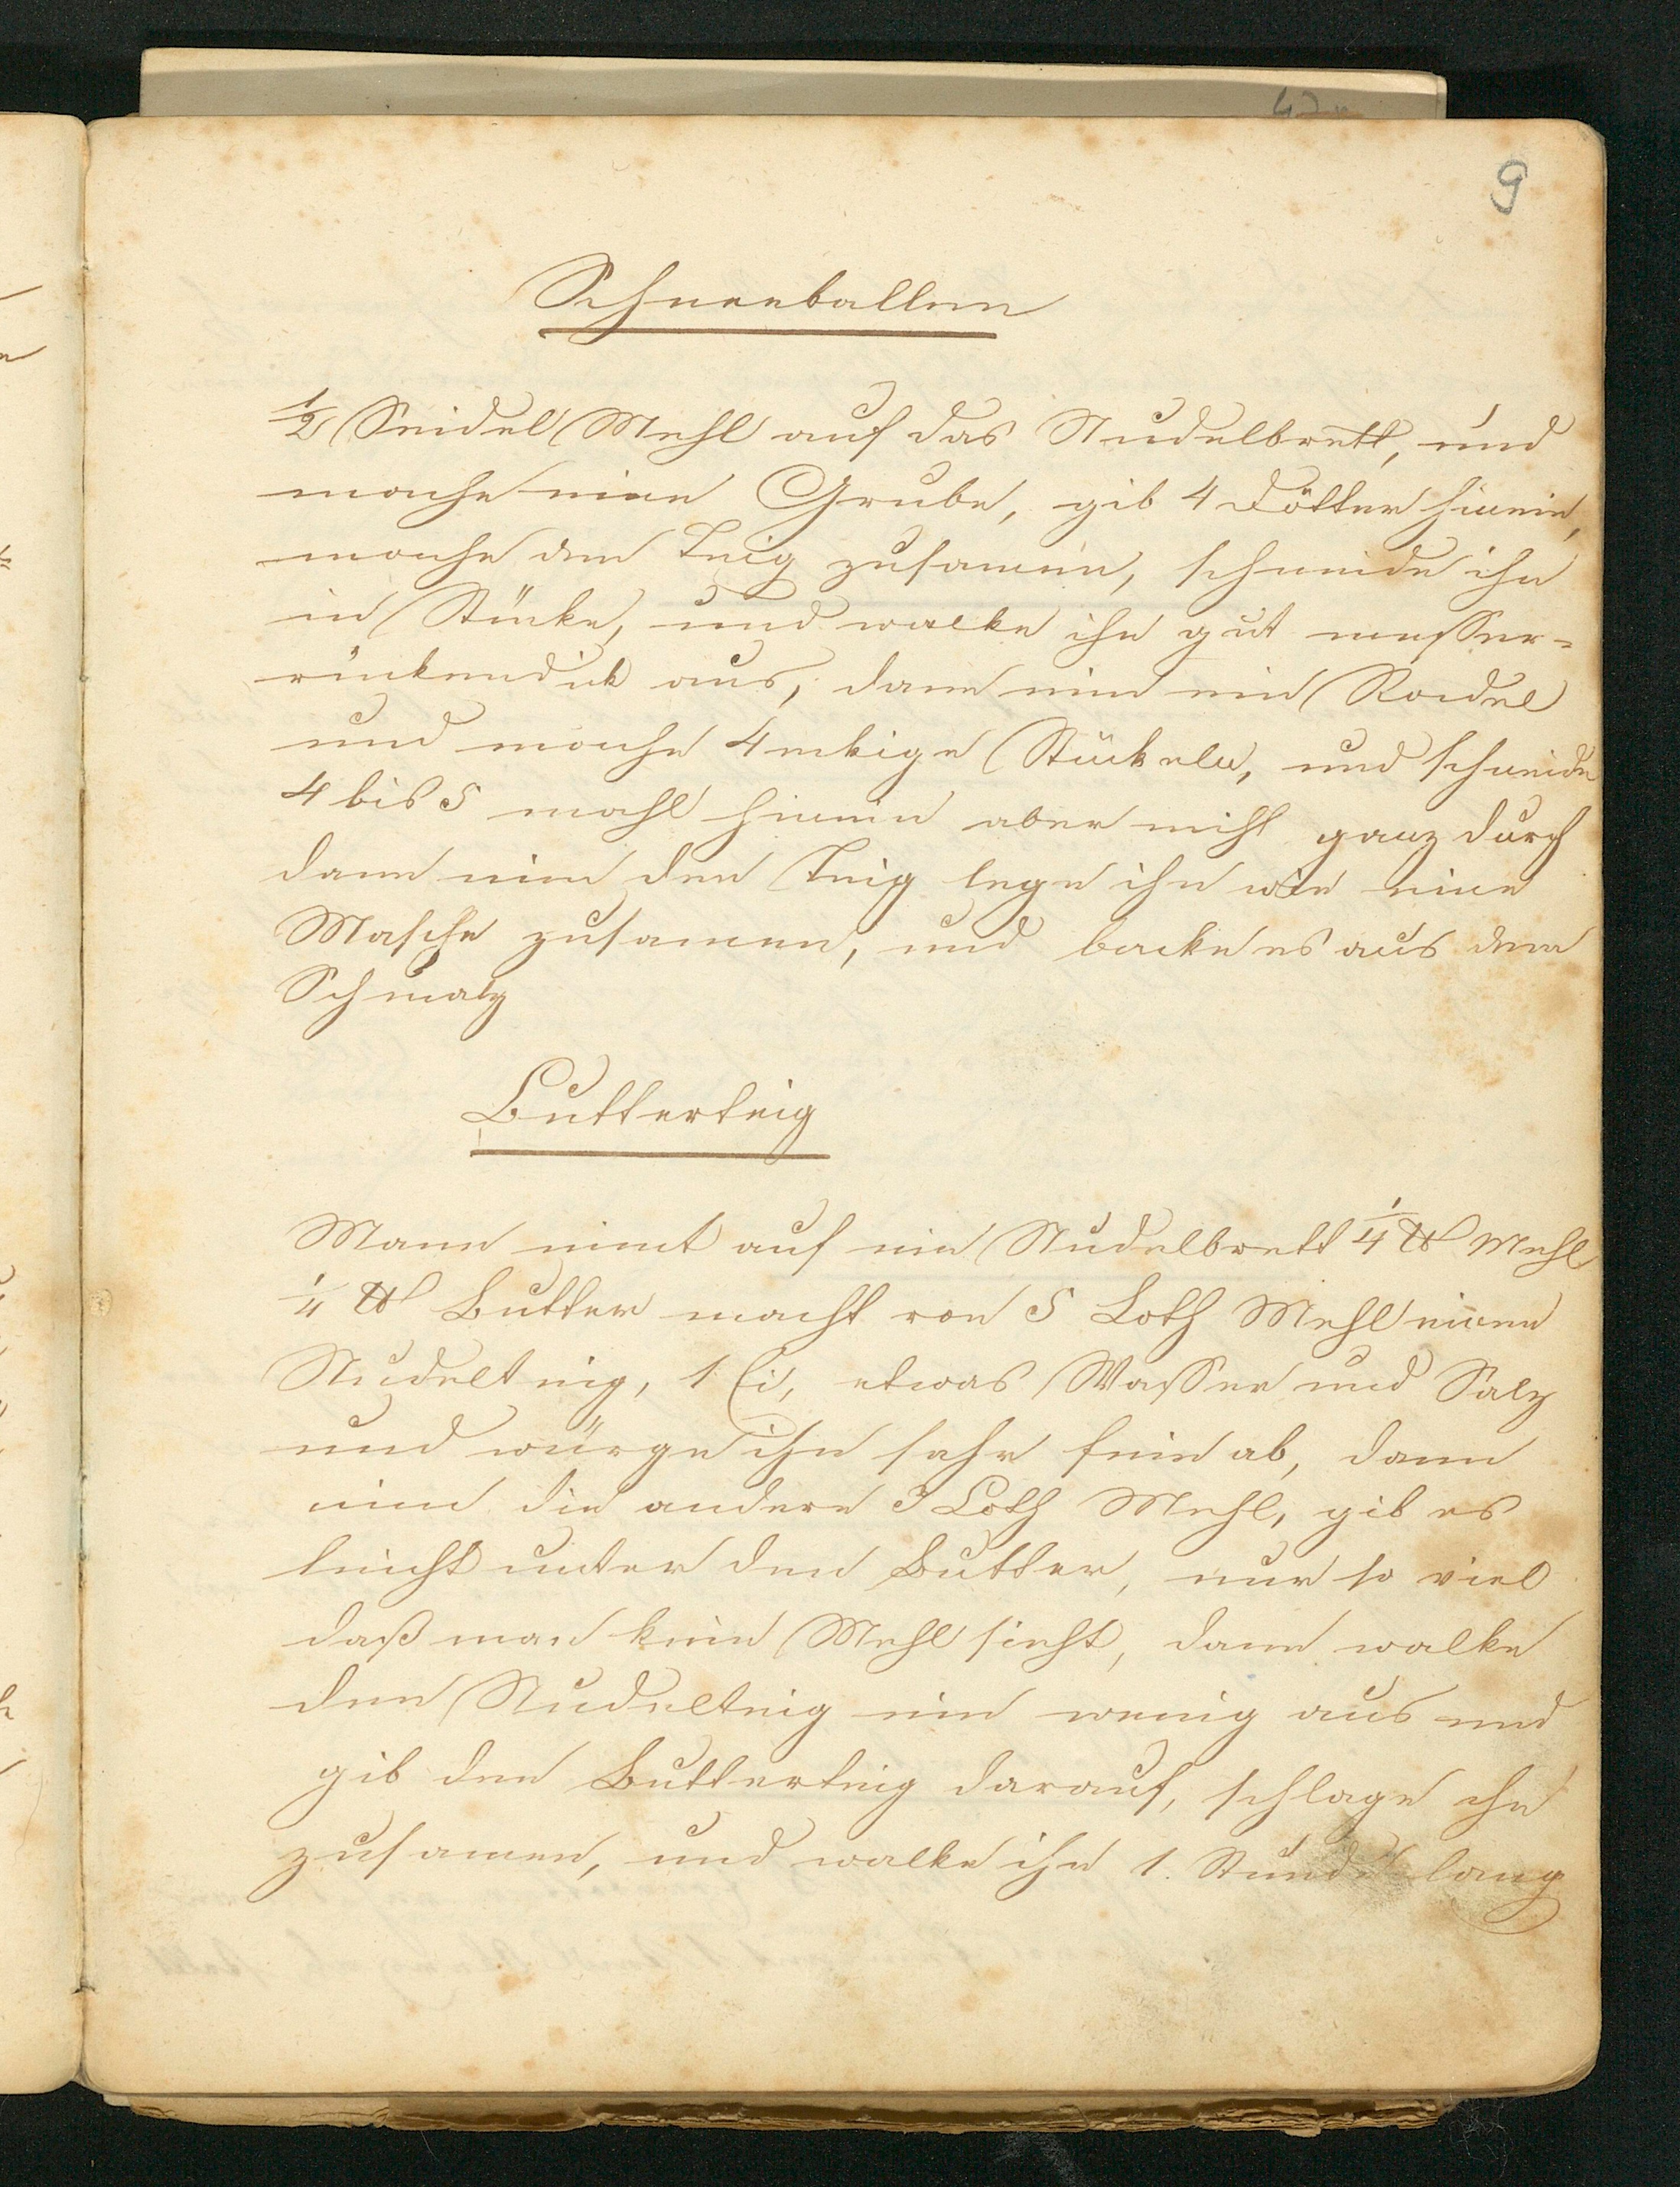 9
Schneeballen
1/2 Seidel Mehl auf das Nudelbrett, und
mache eine Grube, gib 4 Dötter hinein,
mache den Teig zusamen, schneide ihn
in Stücke, und walke ihn gut messer-
rückendick aus, dann nim ein Radel
und mache 4eckige Stückeln, und schneide
4 bis 5 mahl hinein aber nicht ganz durch
dann nim den Teig lege ihn wie eine
Masche zusamen, und backe es aus dem
Schmalz
Butterteig
Mann nimt auf ein Nudelbrett 1/4 ℔ Mehl
1/4 ℔ Butter macht von 5 Loth Mehl einen
Nudelteig, 1 Ei, etwas Wasser und Salz
und würge ihn sehr fein ab, dann
nim die andere 3 Loth Mehl, gib es
leicht unter den Butter, nur so viel
daß man kein Mehl sieht, dann walke
den Nudelteig ein wenig aus und
gib den Butterteig darauf, schlage ihn
zusamen, und walke ihn 1. Stunde lang